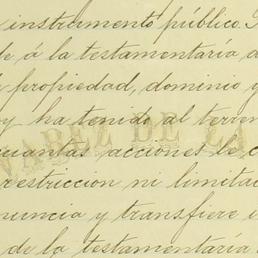 instrumento público.
de á la testamentaría d
propiedad, dominio y
y ha tenido al terren
VAREZ DE LA
cuantas acciones le c
restriccion ni limitac
nuncia y transfiere
de la testamentaría